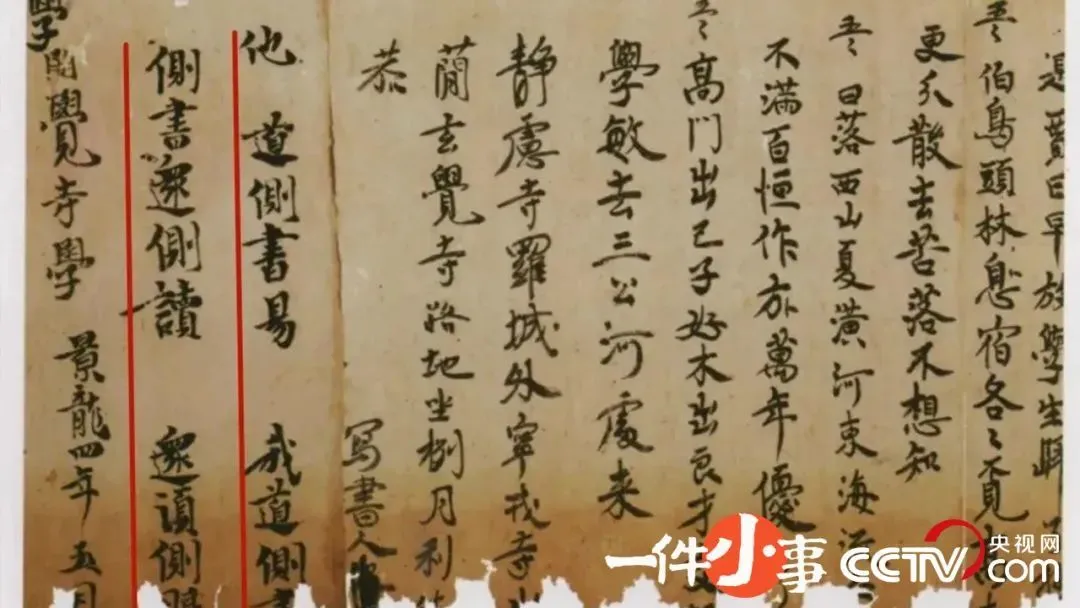 是賈日早放學生歸
伯鳥頭林息宿各〻
更分散去苦落不想知
日落西山夏潢河東海流
不滿百恒作方萬年優
高門出己子好木出良才交
學敏去三公河處来
静慮寺羅城外寧戎寺
蕳玄覺寺路地坐捌月利
恭 寫書人
他道側書易 我道側書
側書還側讀 還須側眼
學開覺寺學 景龍四年五月
一件小事 CCTV.com 央视网